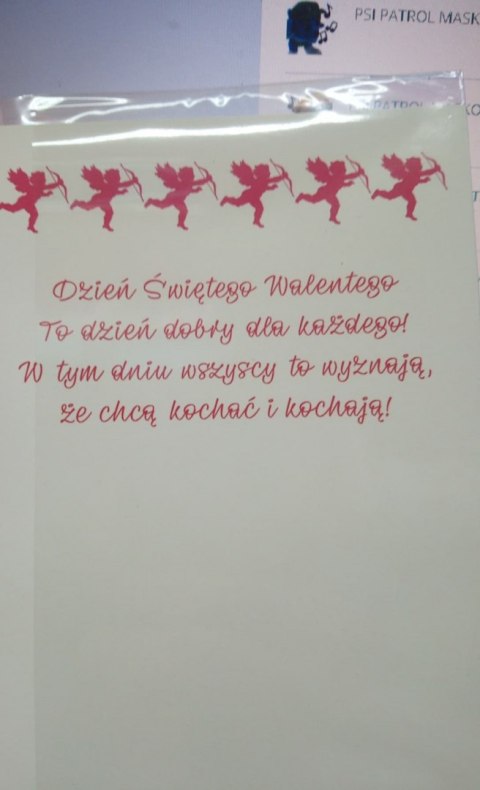 PSI PATROL MASK
PATROL
Dzień Świętego Walentego
To dzień dobry dla każdego!
W tym dniu wszyscy to wyznają,
że chcą kochać i kochają!